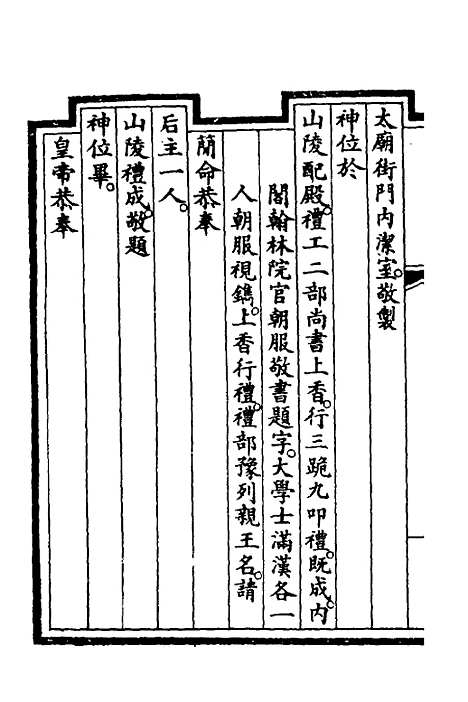 太廟街門內潔室。敬製
神位於
山陵配殿。禮工二部尚書上香。行三跪九叩禮。既成。內
閣翰林院官朝服敬書題字。大學士滿漢各一
人朝服視鐫。上香行禮。禮部豫列親王名。請
簡命恭奉
后主一人。
山陵禮成。敬題
神位畢。
皇帝恭奉